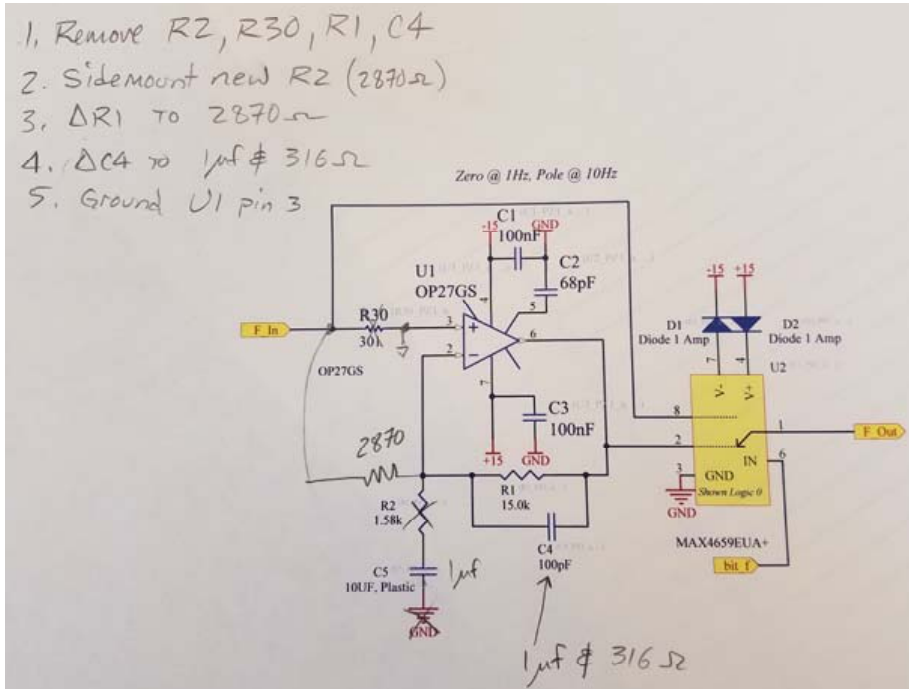 1. Remove R2, R30, R1, C4
2. Sidemount new R2 (2870Ω)
3. ΔR1 TO 2870Ω
4. ΔC4 to 1µf & 316Ω
5. Ground U1 pin 3
Zero @ 1Hz, Pole @ 10Hz
-15
C1
GND
100nF
C2
68pF
U1
OP27GS
4
5
F_In
R30
301
3
2
6
7
OP27GS
C3
100nF
+15
GND
2870
R1
15.0k
R2
1.58k
C4
100pF
C5
10UF, Plastic
1µf
GND
1µf & 316Ω
-15
+15
D1
Diode 1 Amp
D2
Diode 1 Amp
7
4
U2
V-
V+
8
2
1
F_Out
IN
6
3
GND
Shown Logic 0
GND
MAX4659EUA+
bit_f